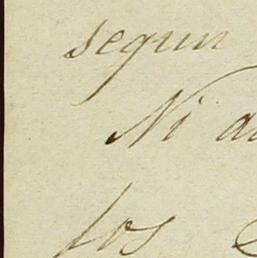 segun
Ni
los